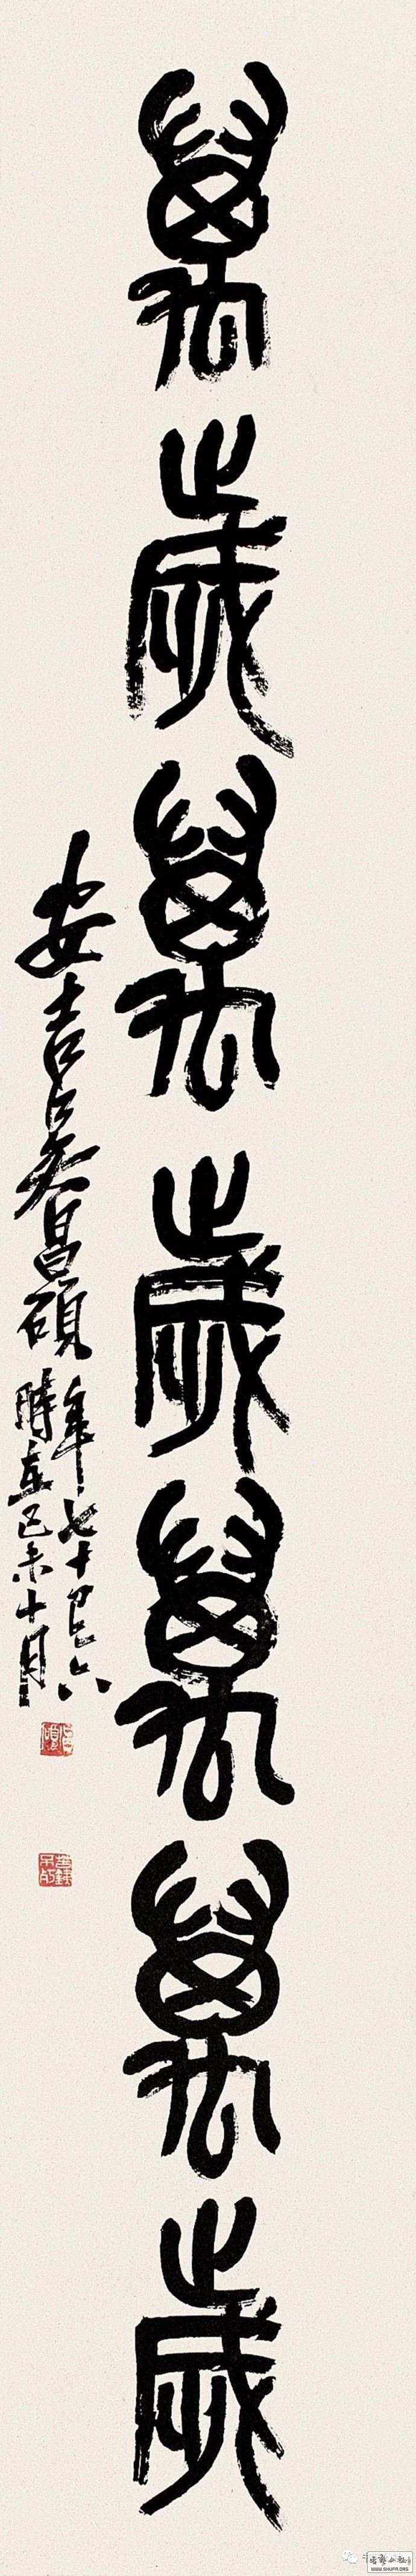 萬歲萬歲萬萬歲
安吉吳昌碩
年七十有六
時在己未十月
WWW.SHUFA.ORG